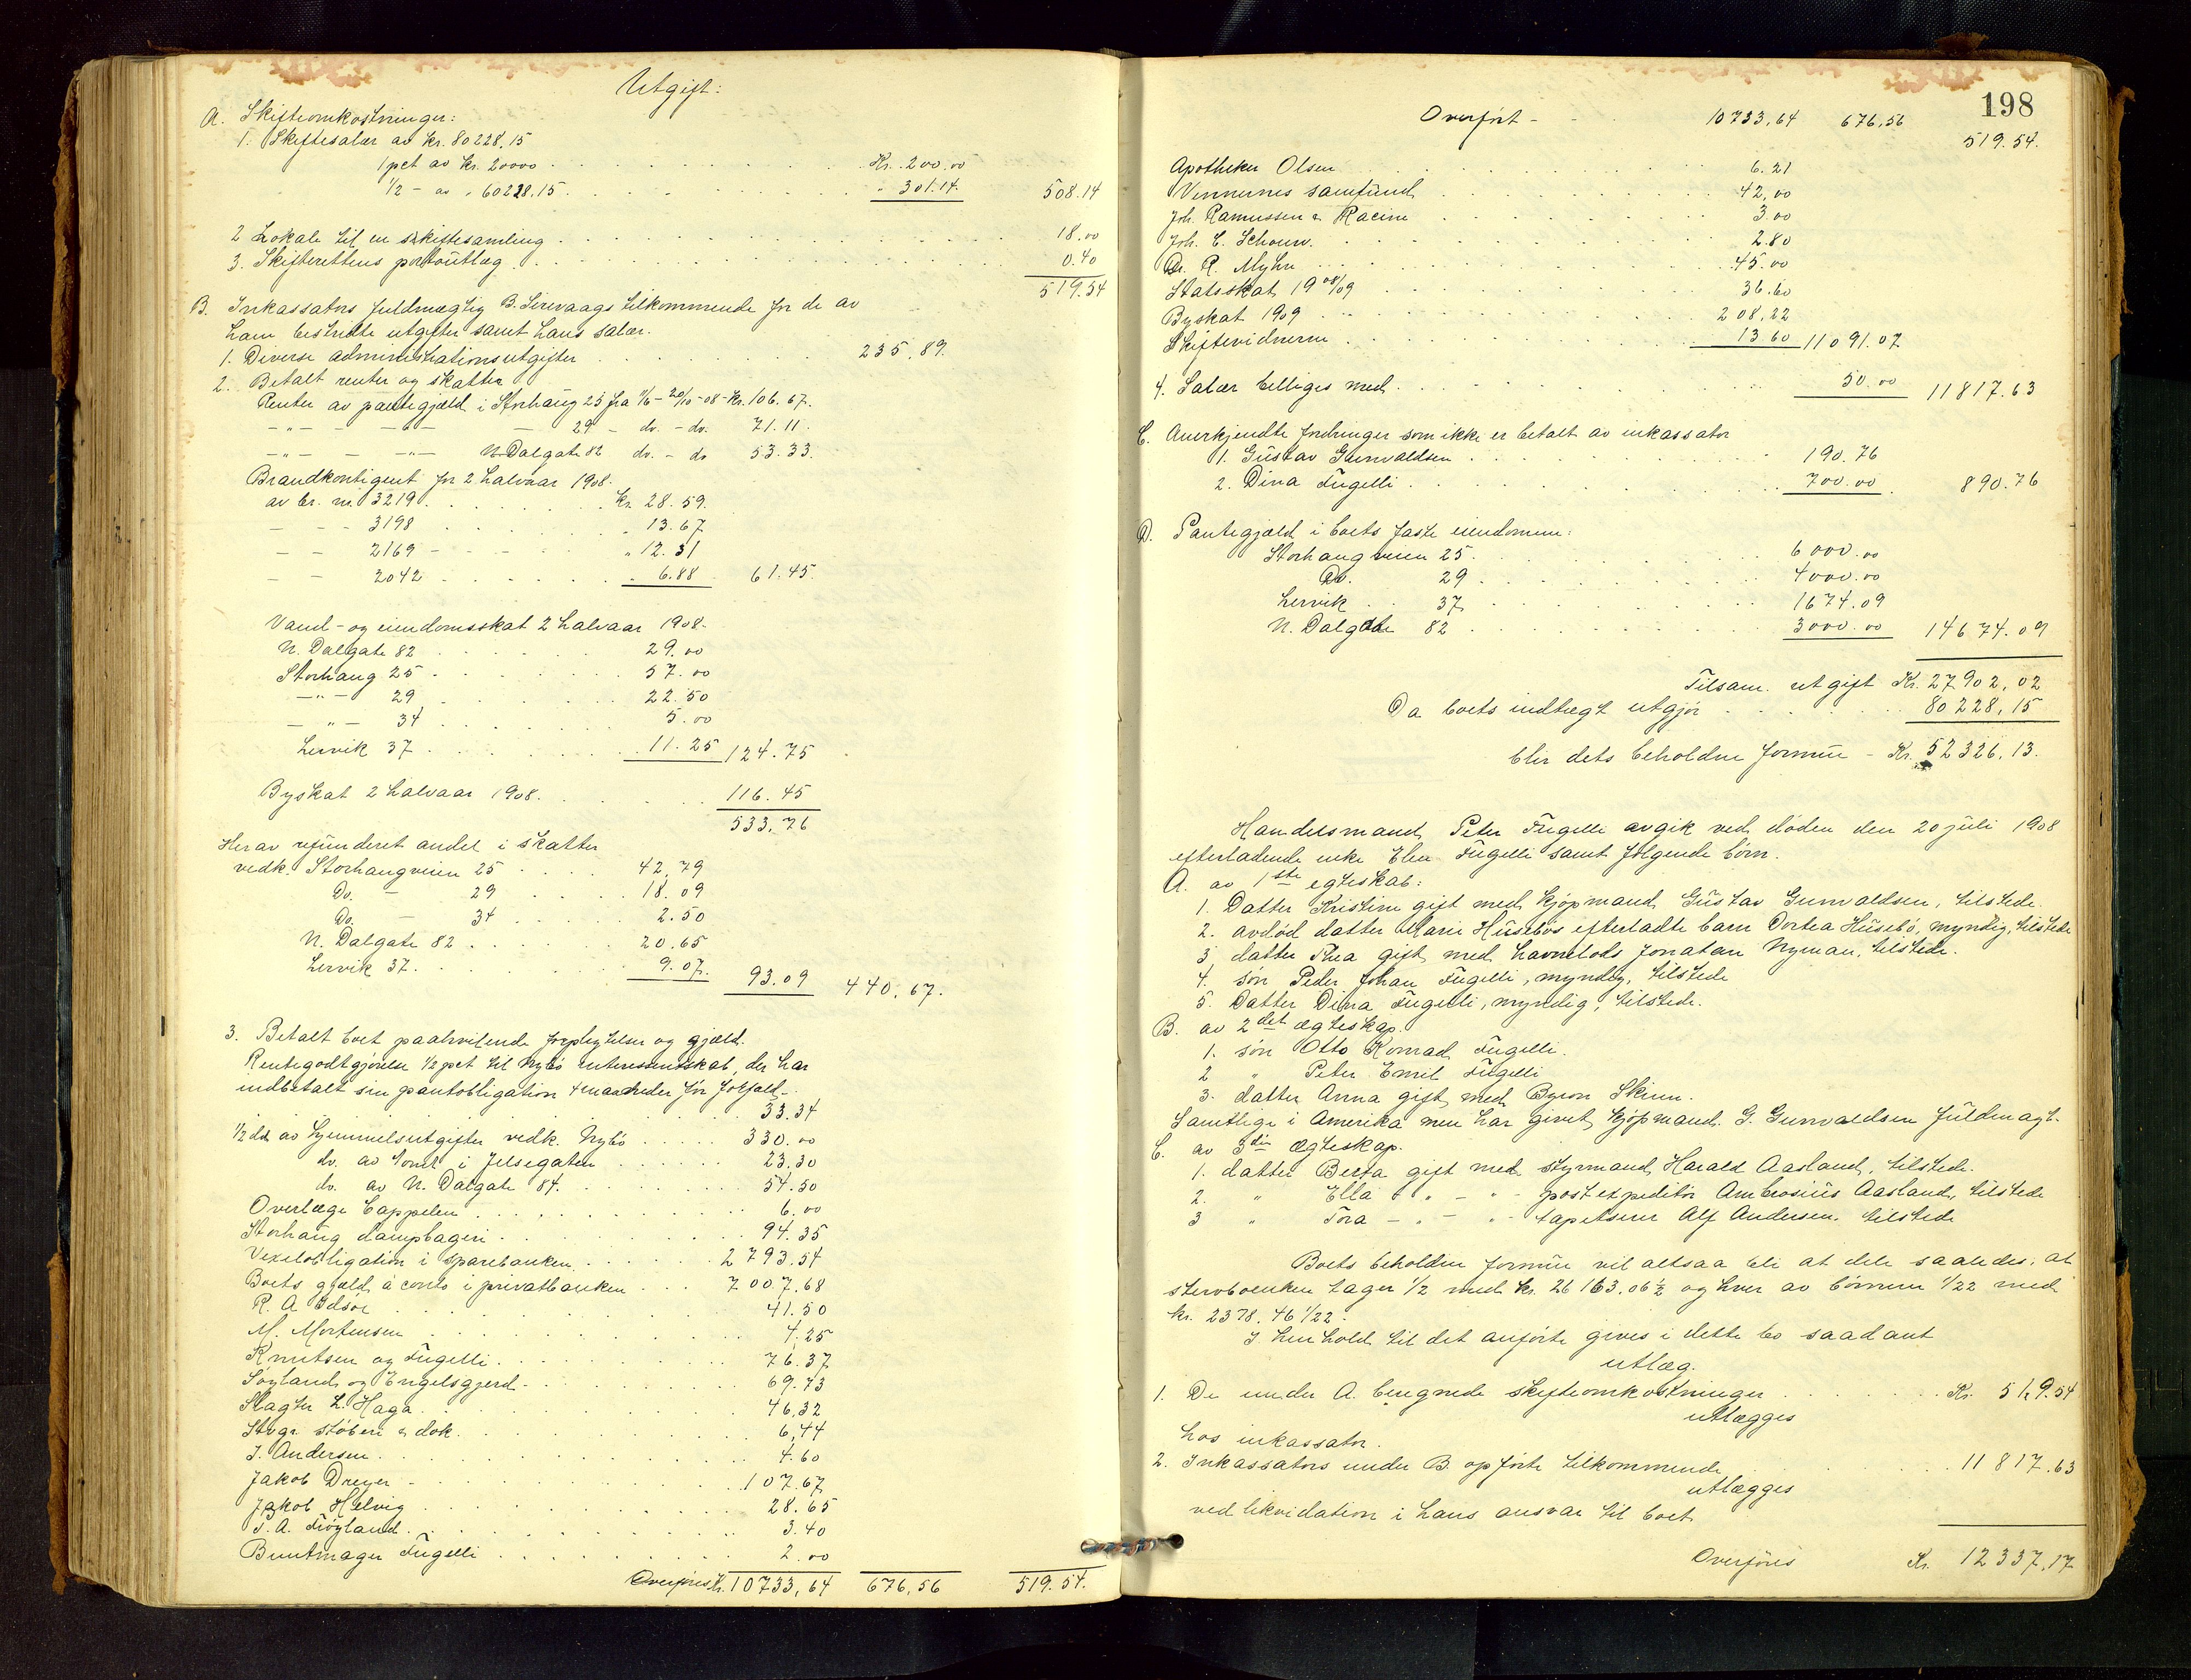 Utgift:
A. Skifteomkostninger:
1. Skiftesalær av kr. 80228,15
1 pct av kr. 20000 Kr. 200.00
1/2 - av " 60228.15 " 301.14. 508.14
2 Lokale til en skiftesamling 18.00
3. Skifterettens portoutlæg 0.40
519.54
B. Inkassators fuldmægtig B. Sirevaags tilkommende for de av
ham bestridte utgifter samt hans salær.
1. Diverse administrationsutgifter 235.89.
2. Betalt renter og skatter
Renter av pantegjæld i Storhaug 25 fra 11/6 - 20/10 - 08 - Kr. 106.67.
- " - - " - - 29 - do. - do. 71.11.
- " - - " - N. Dalgate 82 do. - do 53.33.
Brandkontigent for 2 halvaar 1908.
av br. nr. 3219 kr. 28.59.
- - - 3198 " 13.67
- - 2169 - " 12.31
- - 2042 " 6.88 61.45.
Vand- og eiendomsskat 2 halvaar 1908.
N. Dalgate 82 29.00
Storhaug 25 57.00
- " - 29 22.50
- " - 34 5.00
Lervik 37 11.25 124.75
Byskat 2 halvaar 1908. 116.45
533,76
Herav refunderet andel i skatter
vedk. Storhaugveien 25 42,79
Do. - 29 18.09
Do. - 34 2.50
N. Dalgate 82 20.65
Lervik 37. 9.07. 93.09 440.67.
3. Betalt boet paahvilende forpligtelser og gjæld.
Rentegodtgjørelse 1/2 pct til Nybø interessentskab, der har
indbetalt sin pantobligation 4 maaneder før forfald.
33.34
1/2 del av hjemmelsutgifter vedk. Nybø 330.00
do. av tomt i Jelsegaten 23.30
do. av N. Dalgate 84. 54.50
Overlæge Cappelen 6.00
Storhaug dampbageri 94.35
Vexelobligation i sparebanken 2793.54
Boets gjæld à conto i privatbanken 7007.68
R. A. Idsøe 41.50
M. Mortensen 4.25
Knutsen og Fugelli 76.37
Søyland og Engelsgjerd 69.73
Slagter L. Haga 46,32
Stvgr. støberi & dok. 6,44
I. Andersen 4.60
Jakob Dreyer 107.67
Jakob Helvig 28.65
P. A. Frøyland 3.40
Buntmager Fugelli 2.00
Overføres Kr. 10733,64 676,56 519.54.
198
Overført - 10733,64 676,56
519.54.
Apotheker Olsen 6.21
Vennernes samfund 42,00
Joh. Ramussen & Racine 3.00
Joh. C. Schouw. 2.80
Dr. R. Myhre 45.00
Statsskat 1908/09 36.60
Byskat 1909 208,22
Skiftevidnerne 13.60 11091.07
4. Salær billiges med 50.00 11817.63
C. Anerkjendte fordringer som ikke er betalt av inkassator
1. Gustav Gunvaldsen 190.76
2. Dina Fugelli 700.00 890.76
D. Pantegjæld i boets faste eiendomme:
Storhaugveien 25. 6000.00
Do. 29 4000.00
Lervik 37 1674.09
N. Dalgate 82 3000.00 14674.09
Tilsam. utgift Kr. 27902,02
Da boets indtægt utgjør 80228,15
blir dets beholdne formue - Kr. 52326,13.
Handelsmand Peter Fugelli avgik ved døden den 20 juli 1908
efterladende enke Elen Fugelli samt følgende børn.
A. av 1ste egteskab:
1. Datter Kristine gift med kjøpmand Gustav Gunvaldsen, tilstede.
2. avdød datter Marie Husebøs efterladte barn Dortea Husebø, myndig, tilstede
3. datter Thea gift med havnelods Jonatan Nyman, tilstede.
4. søn Peder Johan Fugelli, myndig, tilstede
5. Datter Dina Fugelli, myndig, tilstede.
B. av 2det ægteskap.
1. søn Otto Konrad Fugelli.
2 " Peter Emil Fugelli
3. datter Anna gift med Byron Skinn.
Samtlige i Amerika men har givet kjøpmand. G. Gunvaldsen fuldmagt.
C. av 3die ægteskap.
1. datter Berta gift med styrmand Harald Aasland, tilstede.
2. " Ella " - " - postexpeditør Ambrosius Aasland, tilstede
3 " Tora - " - " - tapetserer Alf Andersen. tilstede
Boets beholdne formue vil altsaa bli at dele saaledes, at
stervboenken tager 1/2 med kr. 26163.06 1/2 og hver av børnene 1/22 med
kr. 2378.46 1/22.
I henhold til det anførte gives i dette bo saadant
utlæg.
1. De under A. beregnede skifteomkostninger Kr. 519.54
utlægges
hos inkassator.
2. Inkassators under B. opførte tilkommende 11817.63
utlægges
ved likvidation i hans ansvar til boet
Overføres Kr. 12337,17